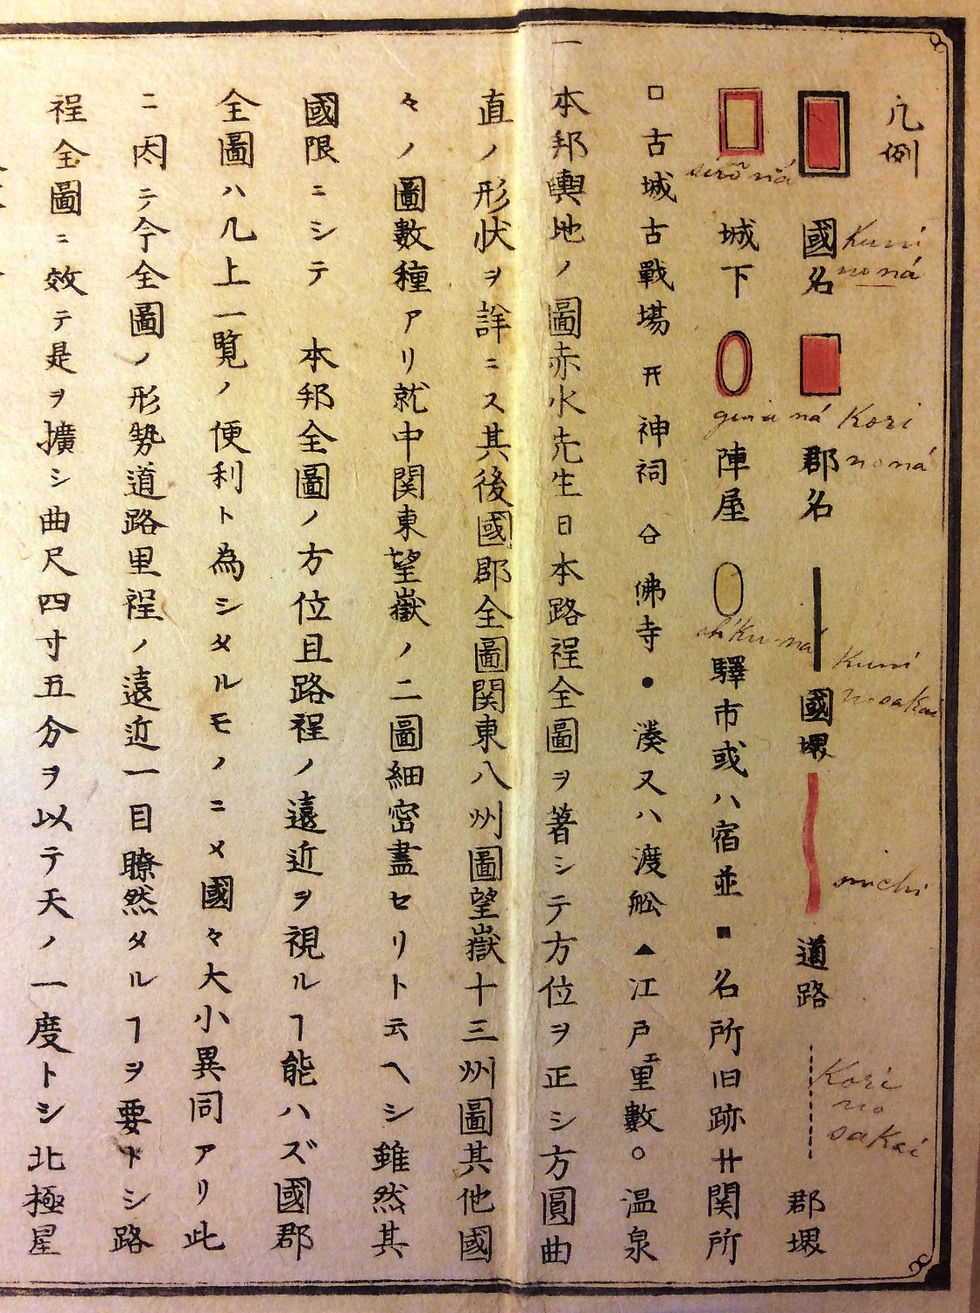 凡例
國名 郡名 國堺 道路 郡堺
kuni
no ná
Kori
no ná
Kuni
no sakai
michi
Kori
no
sakai
城下 陣屋 驛市或ハ宿並 ■名所旧跡 卄関所
□古城古戰場 ⛩神祠 佛寺 ●湊又ハ渡舩 ▲江戸ヱ里數 ○温泉
一本邦輿地ノ圖赤水先生日本路程全圖ヲ著シテ方位ヲ正シ方圓曲
直ノ形状ヲ詳ニス其後國郡全圖関東八州圖望嶽十三州圖其他國
々ノ圖數種アリ就中関東望嶽ノ二圖細密盡セリト云ヘシ雖然其
國限ニシテ 本邦全圖ノ方位且路程ノ遠近ヲ視ルヿ能ハズ國郡
全圖ハ几上一覧ノ便利ト為シタルモノニメ國々大小異同アリ此
ニ因テ今全圖ノ形勢道路里程ノ遠近一目瞭然タルヿヲ要トシ路
程全圖ニ效テ是ヲ擴シ曲尺四寸五分ヲ以テ天ノ一度トシ北極星